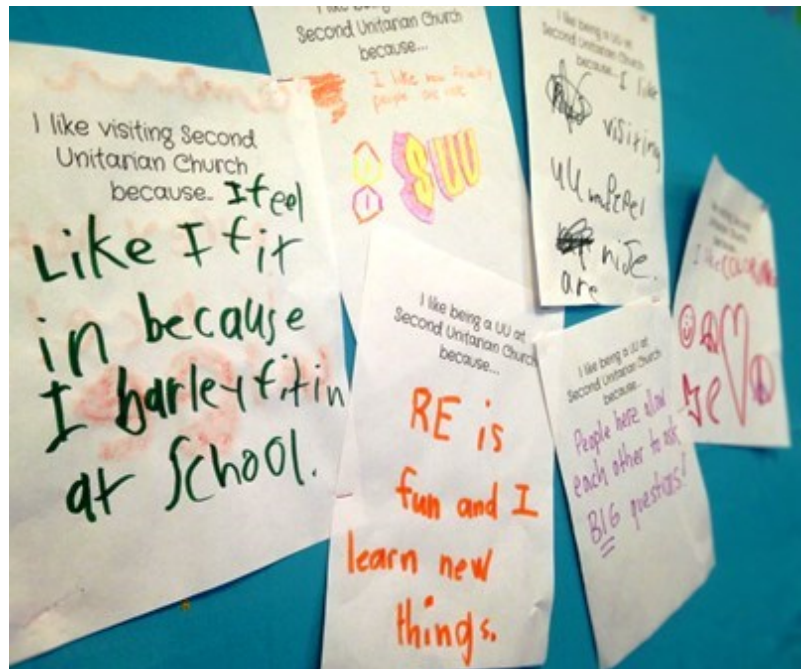 I like visiting Second
Unitarian Church
because.. I feel
Like I fit
in because
I barley fit in
at School.
Second Unitarian Church
because...
I like how friendly
people are
SUU
I like being a UU at
Second Unitarian Church
because... I like
visiting
UU
nise.
are
I like being a UU at
Second Unitarian Church
because...
RE is
fun and I
learn new
things.
I like being a UU at
Second Unitarian Church
because...
People here allow
each other to ask
BIG questions!
Unitarian Church
because...
I like